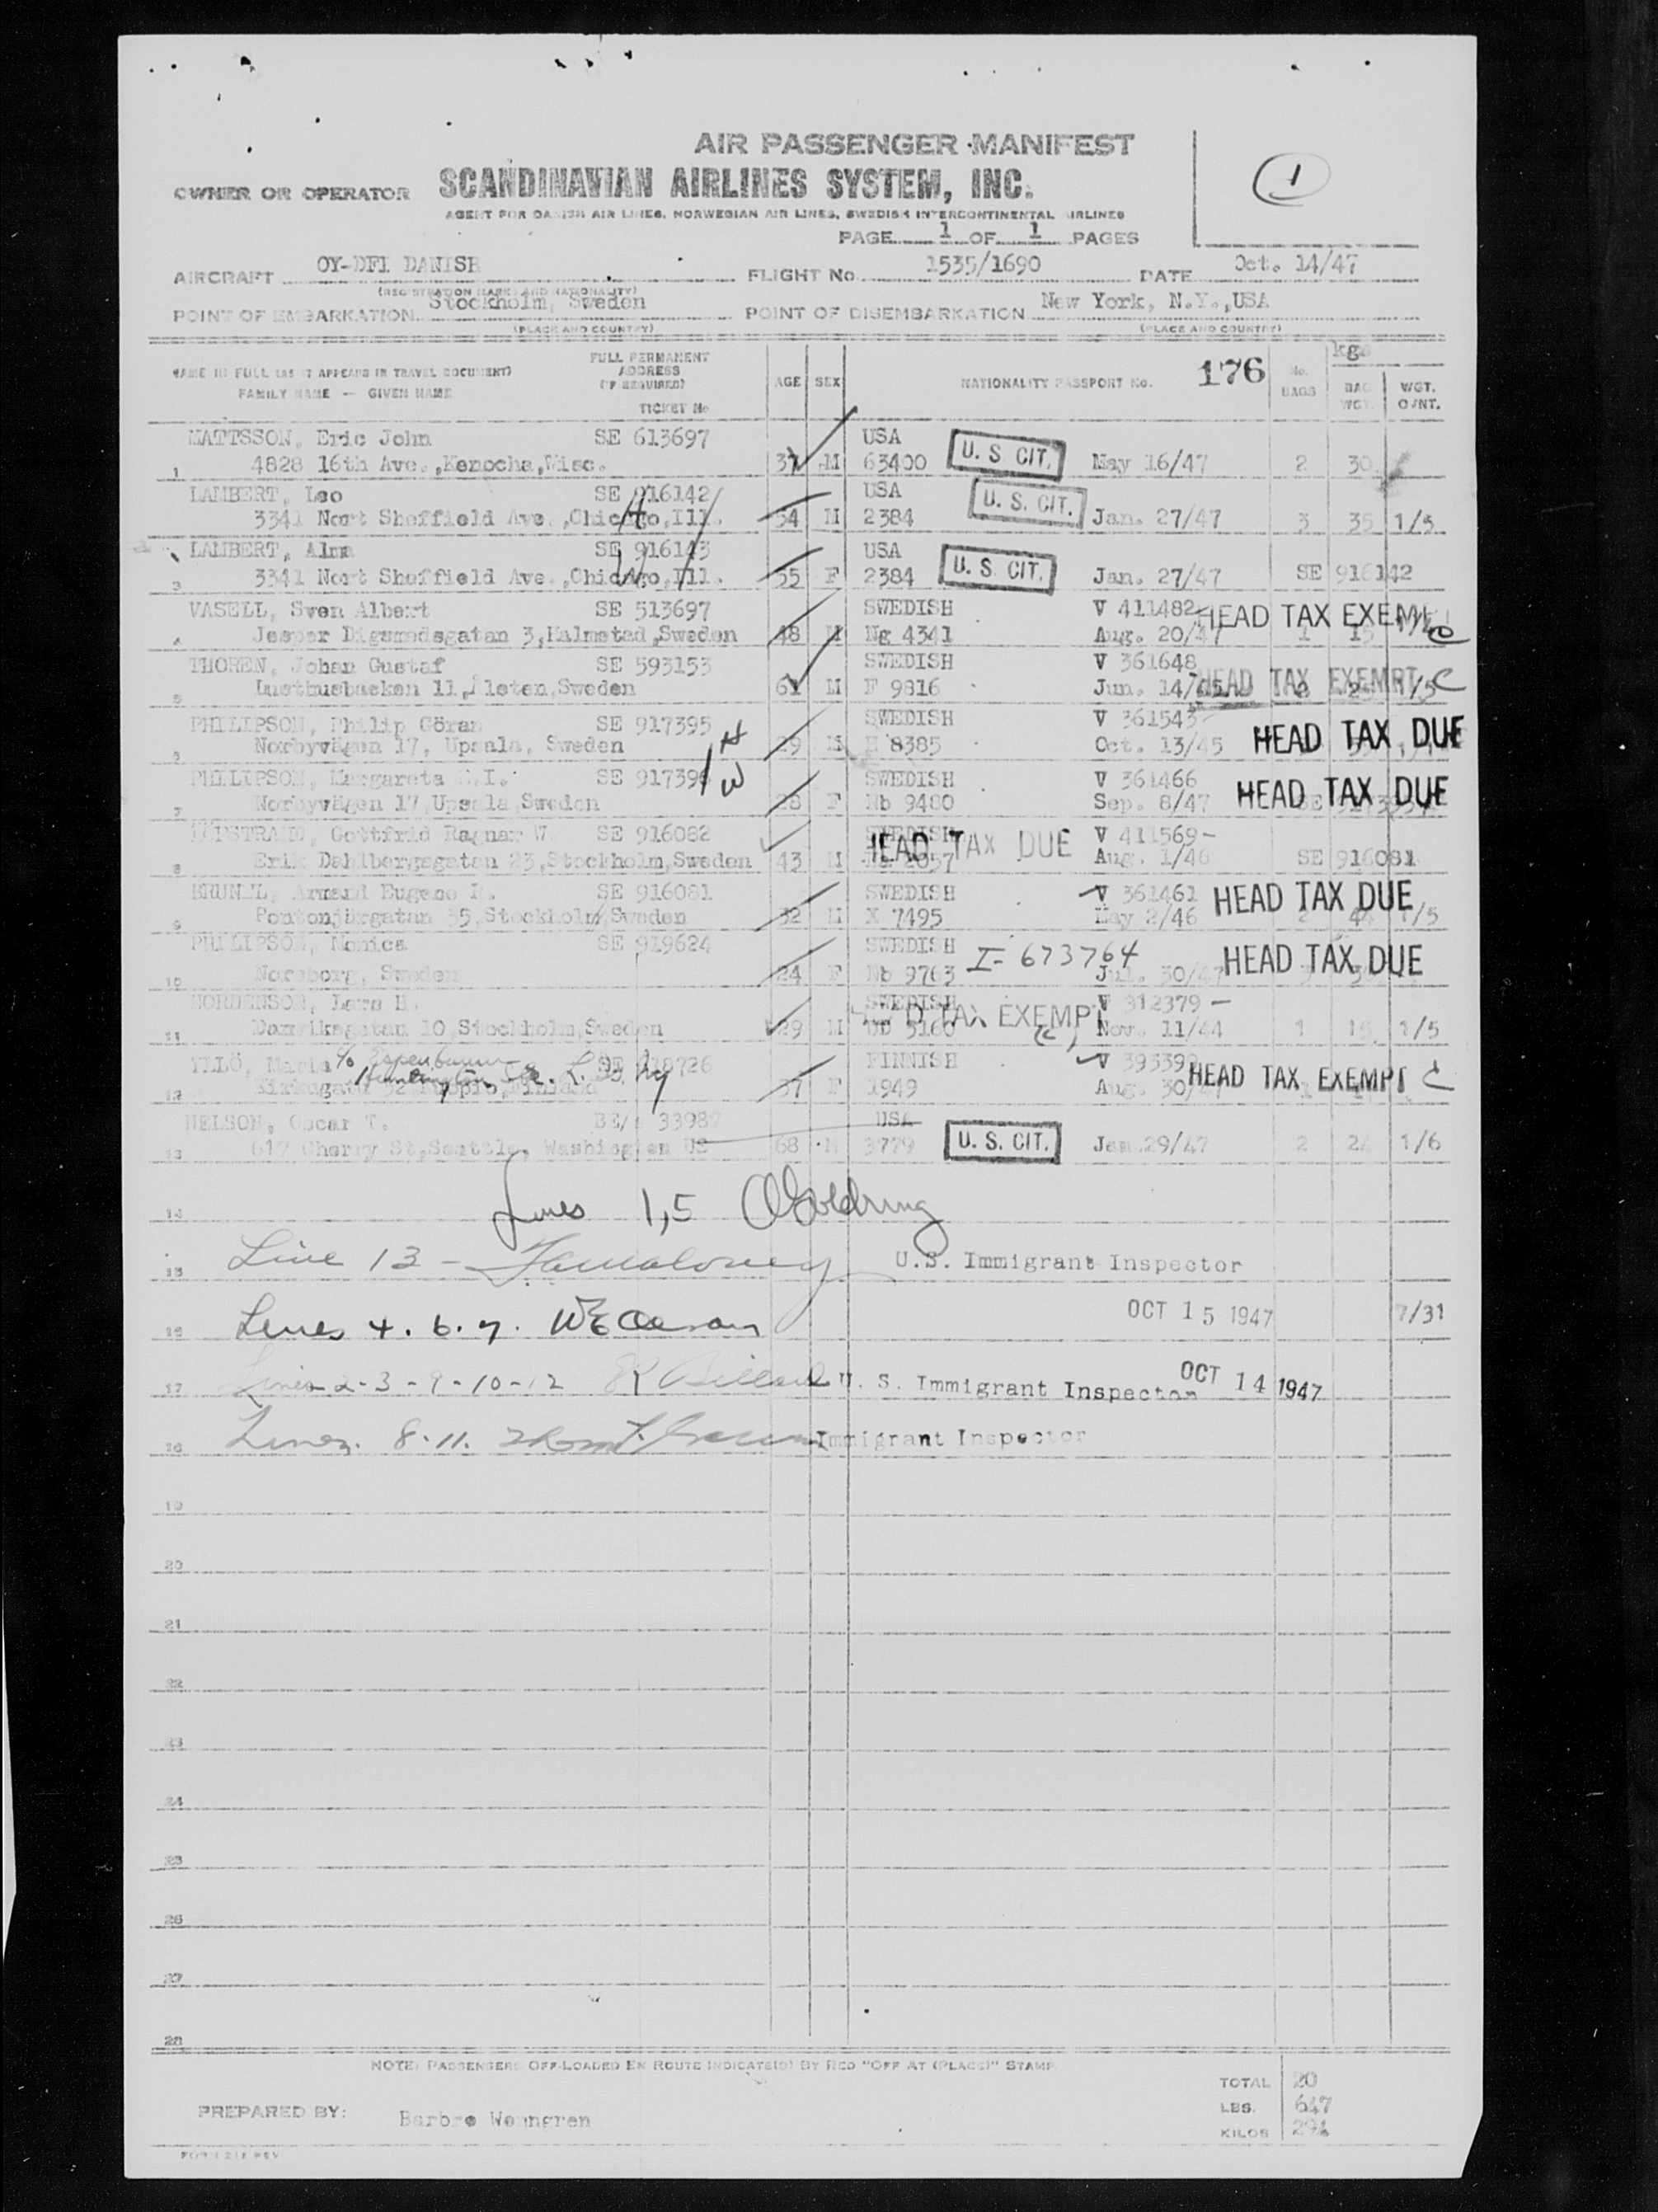 AIR PASSENGER MANIFEST
1
OWNER OR OPERATOR SCANDINAVIAN AIRLINES SYSTEM, INC.
AGENT FOR DANISH AIR LINES, NORWEGIAN AIR LINES, SWEDISH INTERCONTINENTAL AIRLINES
PAGE 1 OF 1 PAGES
AIRCRAFT OY-DFI DANISH FLIGHT No. 1535/1690 DATE Oct. 14/47
(REGISTRATION MARKS AND NATIONALITY)
POINT OF EMBARKATION Stockholm, Sweden POINT OF DISEMBARKATION New York, N.Y.,USA
(PLACE AND COUNTRY) (PLACE AND COUNTRY)
NAME IN FULL (AS IT APPEARS IN TRAVEL DOCUMENT) FULL PERMANENT ADDRESS (IF REQUIRED) AGE SEX NATIONALITY PASSPORT No. 176 No. BAGS kgs BAG WGT. WGT. C/NT.
FAMILY NAME — GIVEN NAME
TICKET No
MATTSSON, Eric John SE 613697 USA
1 4828 16th Ave.,Kenocha,Wisc. 37 M 63400 U. S CIT. May 16/47 2 30
LAMBERT, Leo SE 916142 USA
3341 Nort Sheffield Ave.,Chicago,Ill. H 54 M 2384 U. S. CIT. Jan. 27/47 3 35 1/5
LAMBERT, Alma SE 916143 USA
3 3341 Nort Sheffield Ave.,Chicago,Ill. W 55 F 2384 U. S. CIT. Jan. 27/47 SE 916142
VASELL, Sven Albert SE 513697 SWEDISH V 411482 HEAD TAX EXEMPT
4 Jesper 3,Halmstad,Sweden 48 M Ng 4341 Aug. 20/47 1 15 C
THOREN, Johan Gustaf SE 593153 SWEDISH V 361648
5 Lusthusbacken 11,Ålsten,Sweden 61 M F 9816 Jun. 14/ HEAD TAX EXEMPT 1/5 C
PHILIPSON, Philip Göran SE 917395 H SWEDISH V 361543
Norbyvägen 17, Upsala, Sweden 29 M 8385 Oct. 13/45 HEAD TAX DUE
PHILIPSON, Margareta E.I. SE 917396 W SWEDISH V 361466
7 Norbyvägen 17,Upsala,Sweden 28 F Nb 9480 Sep. 8/47 HEAD TAX DUE
Gottfrid Ragnar W. SE 916082 SWEDISH V 411569-
8 Erik Dahlbergsgatan 23,Stockholm,Sweden 43 M 2057 HEAD TAX DUE Aug. 1/46 SE 916081
Armand Eugene SE 916081 SWEDISH V 361461
9 Pontonjärgatan 35,Stockholm,Sweden 32 M X 7495 May 2/46 HEAD TAX DUE 2 44 1/5
PHILIPSON, Monica SE 919624 SWEDISH I- 673764
10 Norrborg, Sweden 24 F Nb 9763 Jul. 30/47 HEAD TAX DUE
NORDENSON, Lars H. SWEDISH V 312379 -
11 Danviksgatan 10,Stockholm,Sweden 29 M 5160 TAX EXEMPT (c) Nov. 11/44 1 15 1/5
YLLÖ, Maria c/o FINNISH V 393399
12 Finland 37 F 1949 Aug. 30/ HEAD TAX EXEMPT C
NELSON, Oscar T. 33987 USA
13 617 Cherry St,Seattle, Washington US 68 M 3779 U. S. CIT. Jan.29/47 2 24 1/6
14 Lines 1,5
15 Line 13 - U.S. Immigrant Inspector
16 Lines 4. 6. 7. OCT 15 1947 7/31
17 Lines 2-3-9-10-12 U. S. Immigrant Inspector OCT 14 1947
18 Lines. 8-11. Immigrant Inspector
19
20
21
22
23
24
25
26
27
28
NOTE: PASSENGERS OFF-LOADED EN ROUTE INDICATE(D) BY RED "OFF AT (PLACE)" STAMP.
TOTAL 20
PREPARED BY: Barbro Wenngren LBS. 647
KILOS 294